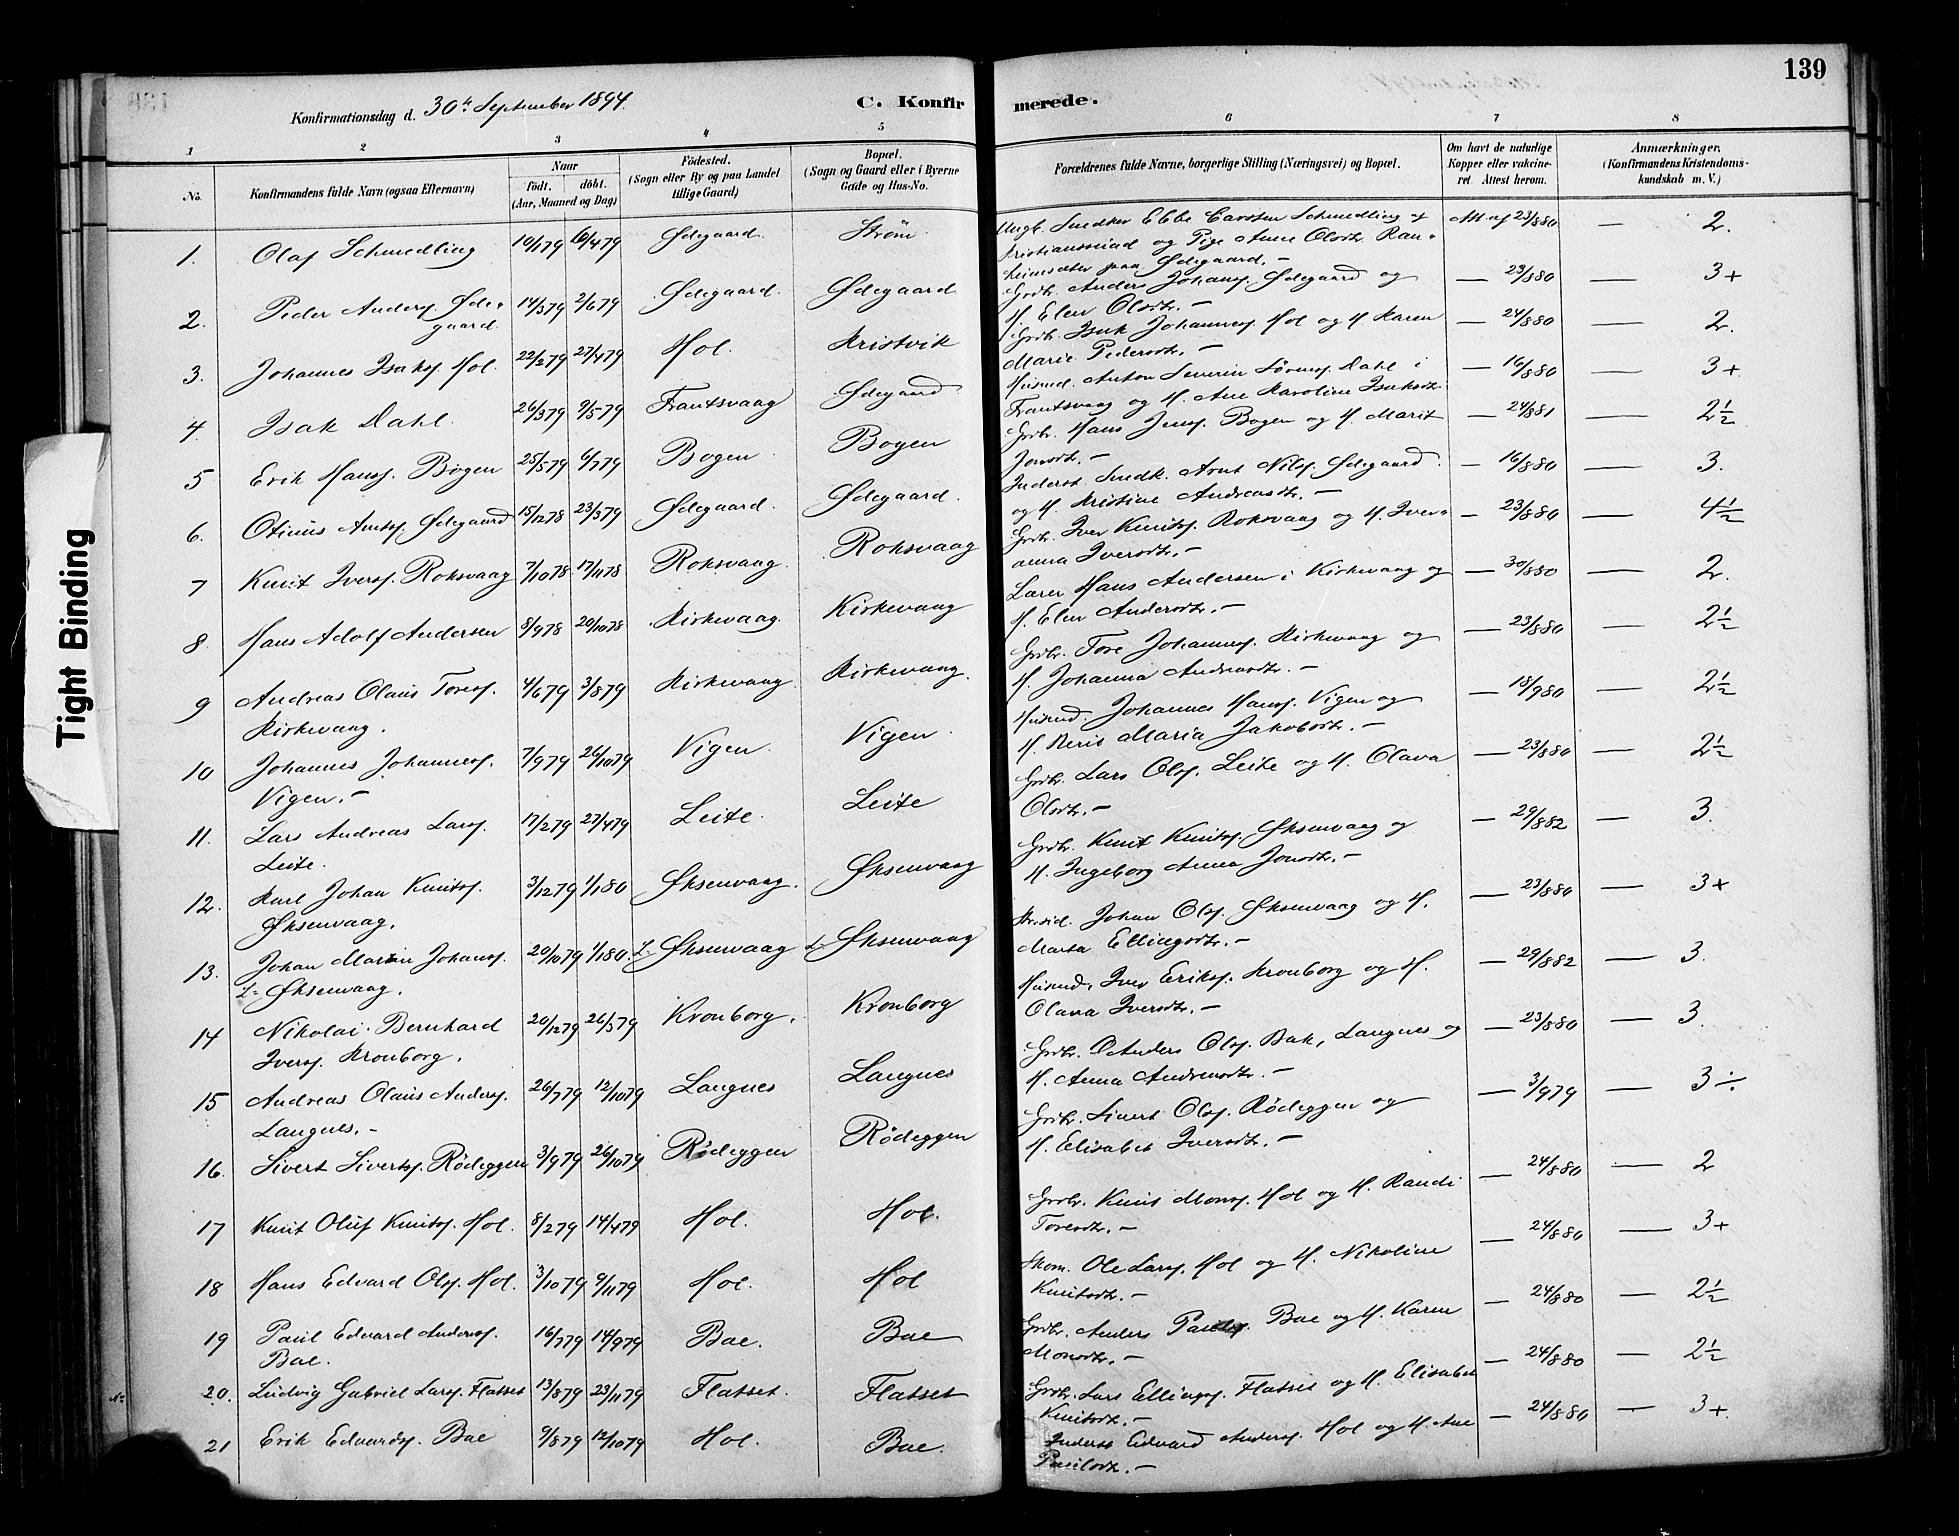 139
Konfirmationsdag d. 30te September 1894.
C. Konfirmerede.
1 2 3 4 5 6 7 8
No. Konfirmandens fulde Navn (ogsaa Efternavn) Naar født. døbt. (Aar, Maaned og Dag) Fødested. (Sogn eller By og paa Landet tillige Gaard) Bopæl. (Sogn og Gaard eller i Byerne Gade og Hus-No. Forældrenes fulde Navne, borgerlige Stilling (Næringsvei) og Bopæl. Om havt de naturlige Kopper eller vakcineret. Attest herom. Anmærkninger. (Konfirmandens Kristendomskundskab m. V.)
1. Olaf Schmedling 10/1 79 6/4 79 Ødegaard. Strøm. Ungk. Snedker Ebbe Carsten Schmedling af Kristianssund og Pige Anne Olsdtr. paa Ødegaard.- Att. af 23/8 80 — 2.
2. Peder Anders. Ødegaard 14/3 79 2/6 79 Ødegaard. Ødegaard Grdbr. Anders Johans. Ødegaard og H. Elen Olsdtr.- — 23/8 80 — 3+
3. Johannes Isaks. Hol. 22/2 79 27/4 79 Hol. Kristvik Grdbr. Isak Johannes. Hol og H. Karen Marie Pedersdtr.- — 24/8 80 — 2.
4. Isak Dahl. 26/3 79 9/5 79 Frantsvaag Ødegaard Husmd. Anton Severin Sørens. Dahl i Frantsvaag og H. Ane Karoline Isaksdtr. — 16/8 80 — 3+
5 Erik Hans. Bogen 25/5 79 6/7 79 Bogen Bogen Grdbr. Hans Jens. Bogen og H. Marit Jonsdtr.- — 24/8 81 — 2½
6. Otinus Arnts. Ødegaard 15/12 78 23/3 79 Ødegaard. Ødegaard. Inderst Snedk. Arnt Nils. Ødegaard og H. Kristine Andreasdtr.- — 16/8 80 — 3.
7 Knut Ivers. Roksvaag 7/10 78 17/11 78 Roksvaag. Roksvaag Grdbr. Iver Knuts. Roksvaag og H. Iveranna Iversdtr.- — 23/8 80 — 4½
8 Hans Adolf Andersen 8/9 78 20/10 78 Kirkevaag. Kirkevaag Lærer Hans Andersen i Kirkevaag og H. Elen Andersdtr.- — 30/8 80 — 2.
9 Andreas Olaus Tores. Kirkevaag. 4/6 79 3/8 79 Kirkevaag. Kirkevaag. Grdbr. Tore Johannes. Kirkevaag og H. Johanna Andreasdtr.- — 23/8 80 — 2½
10 Johannes Johannes. Vigen.- 7/9 79 26/10 79 Vigen. Vigen. Husmd. Johannes Hans. Vigen og H. Beris Maria Jakobsdtr.- — 18/9 80 — 2½
11. Lars Andreas Lars. Leite. 17/2 79 27/4 79 Leite. Leite Grdbr. Lars Ols. Leite og H. Olava Olsdtr.- — 23/8 80 — 2½
12. Karl Johan Knuts. Øksenvaag. 3/12 79 1/1 80 Øksenvaag. Øksenvaag Grdbr. Knut Knuts. Øksenvaag og H. Ingeborg Anna Jonsdtr.- — 29/8 82 — 3.
13. Johan Martin Johans. L. Øksenvaag. 20/10 79 1/1 80 L. Øksenvaag L. Øksenvaag Johan Ols. Øksenvaag og H. Marta Ellingsdtr.- — 23/8 80 — 3+
14 Nikolai Bernhard Ivers. Kronborg. 20/12 79 26/3 79 Kronborg. Kronborg Husmd. Iver Eriks. Kronborg og H. Olava Iversdtr.- — 29/8 82 — 3.
15 Andreas Olaus Anders. Langnes.- 26/7 79 12/10 79 Langnes Langnes Grdbr. Anders Ols. Bak, Langnes og H. Anna Andreasdtr.- — 23/8 80 — 3.
16. Sivert Siverts. Rødeggen 3/9 79 26/10 79 Rødeggen Rødeggen Grdbr. Sivert Ols. Rødeggen og H. Elisabet Iversdtr.- — 3/9 79 — 3÷
17 Knut Oluf Knuts. Hol. 8/2 79 14/4 79 Hol. Hol. Grdbr. Knut Mons. Hol og H. Randi Toresdtr.- — 24/8 80 — 2
18 Hans Edvard Ols. Hol. 3/10 79 9/11 79 Hol. Hol Skom. Ole Lars. Hol og H. Nikoline Knutsdtr.- — 24/8 80 — 3+
19 Paul Edvard Anders. Bae. 16/7 79 14/9 79 Bae. Bae Grdbr. Anders Pauls. Bae og H. Karen Monsdtr.- — 24/8 80 — 2½
20. Ludvig Gabriel Lars. Flatset 13/8 79 23/11 79 Flatset. Flatset Grdbr. Lars Ellings. Flatset og H. Elisabet Knutsdtr.- — 24/8 80 — 2½
21 Erik Edvards. Bae 9/8 79 12/10 79 Hol. Bae. Inderst Edvard Anders. Hol og H. Ane Paulsdtr.- — 24/8 80 — 3+
Tight Binding